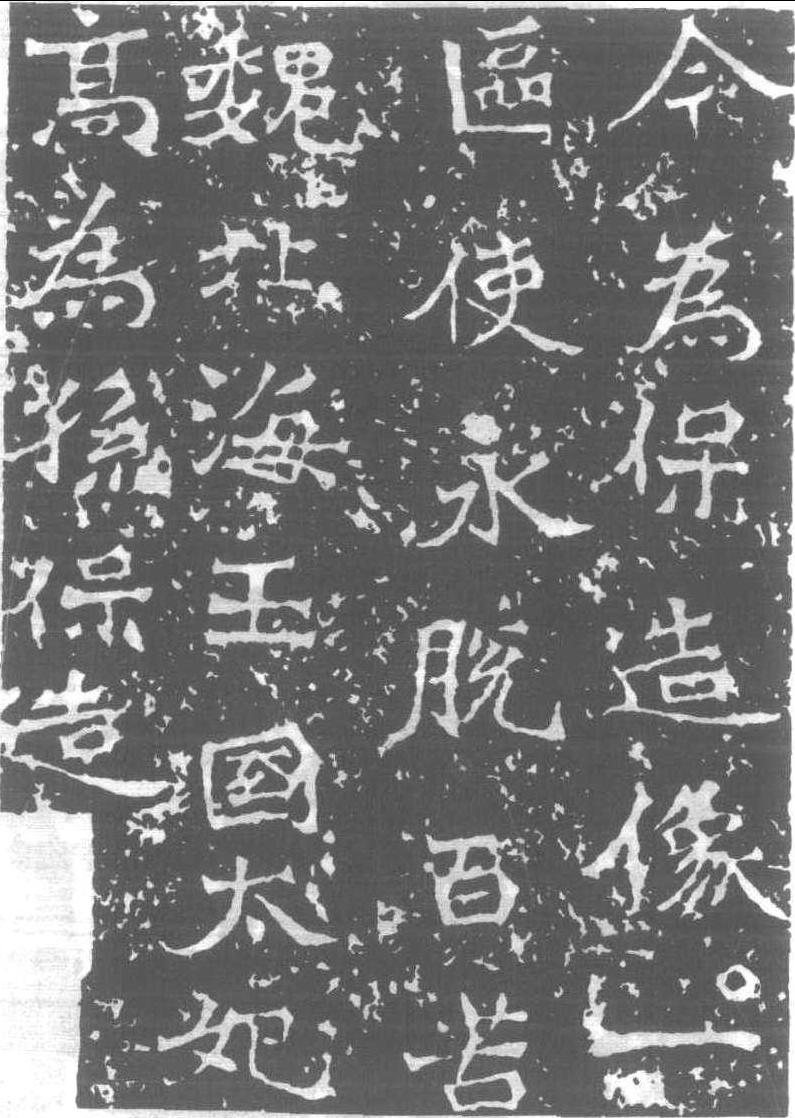 今為保造像一
區使永脫百苦
魏北海王國太妃
高為孫保造